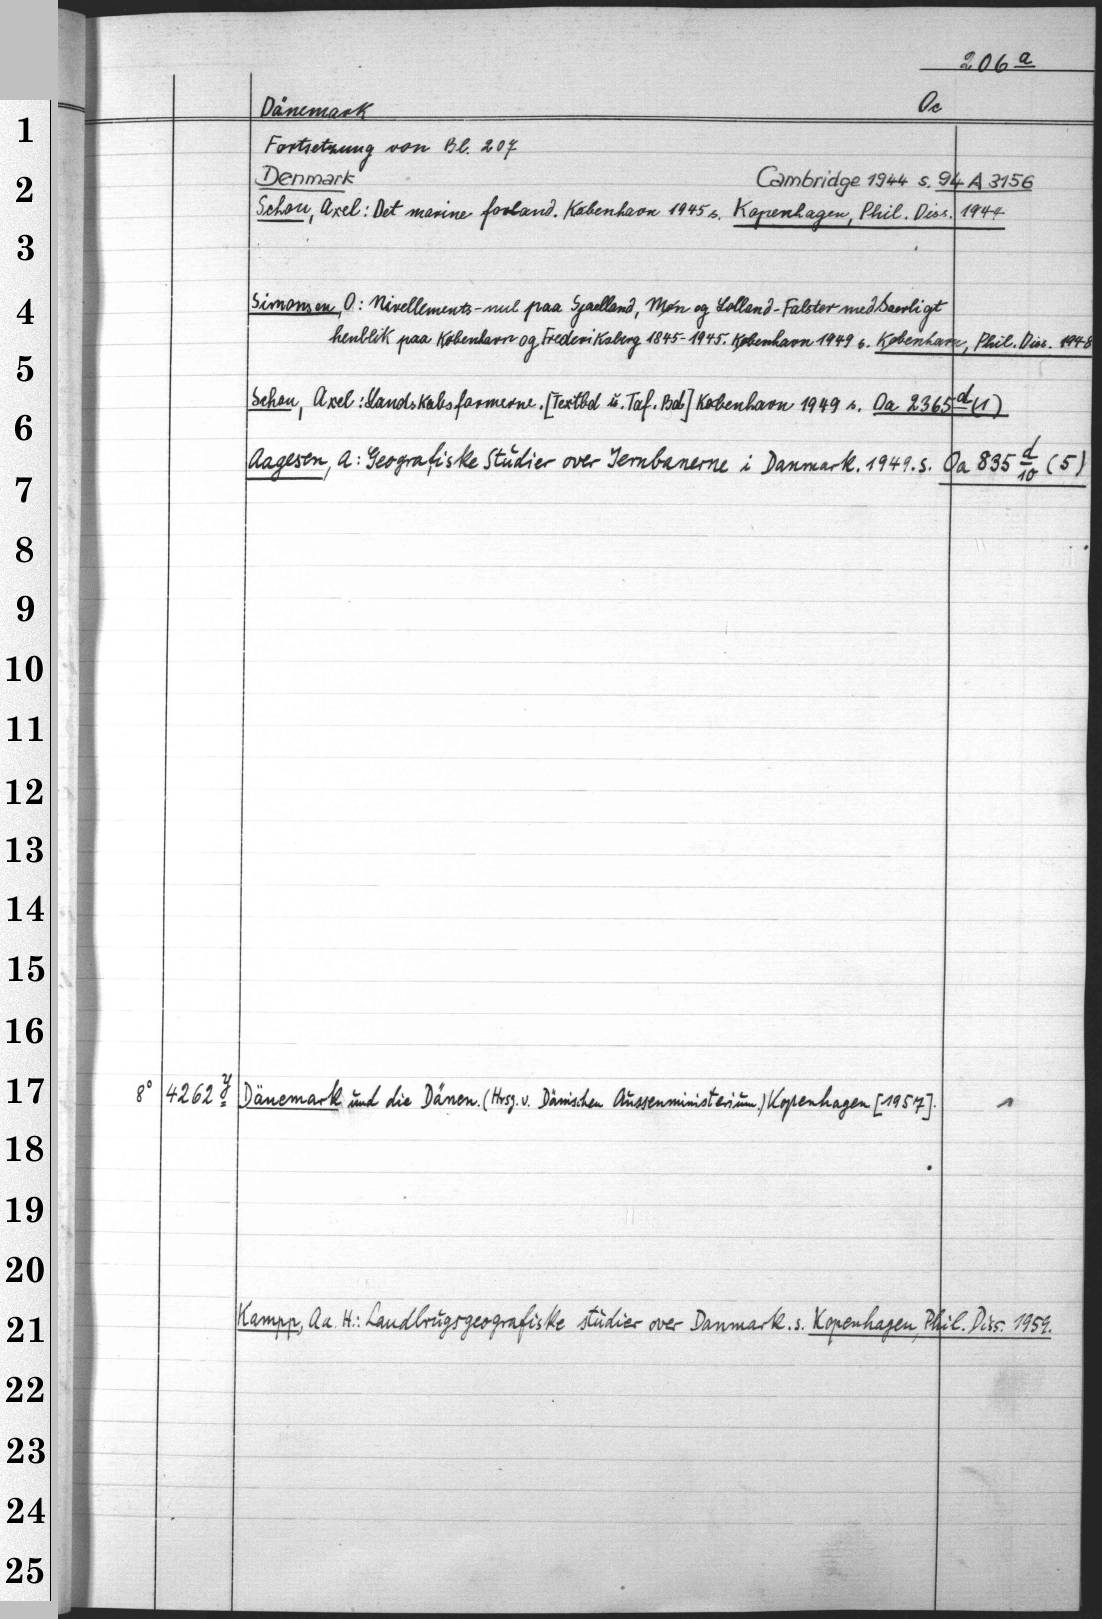 206 a
Dänemark Oc
Fortsetzung von Bl. 207
Denmark Cambridge 1944 s. 94 A 3156
Schou, Axel: Det marine forland. København 1945 s. Kopenhagen, Phil. Diss. 1944
Simonsen, O: Nivellements-nul paa Sjaelland, Møn og Lolland-Falster med Saerligt
henblik paa København og Frederiksberg 1845-1945. København 1949 s. København, Phil. Diss. 1948
Schou, Axel: Landskabsformerne. [Textbd u. Taf. Bd] København 1949 s. Oa 2365 d (1)
Aagesen, A: Geografiske Studier over Jernbanerne i Danmark. 1949. s. Oa 835 d/10 (5)
8° 4262 y Dänemark und die Dänen. (Hrsg. v. Dänischen Aussenministerium.) Kopenhagen [1957]. 1
Kampp, Aa. H.: Landbrugsgeografiske studier over Danmark. s. Kopenhagen, Phil. Diss. 1959.
1
2
3
4
5
6
7
8
9
10
11
12
13
14
15
16
17
18
19
20
21
22
23
24
25